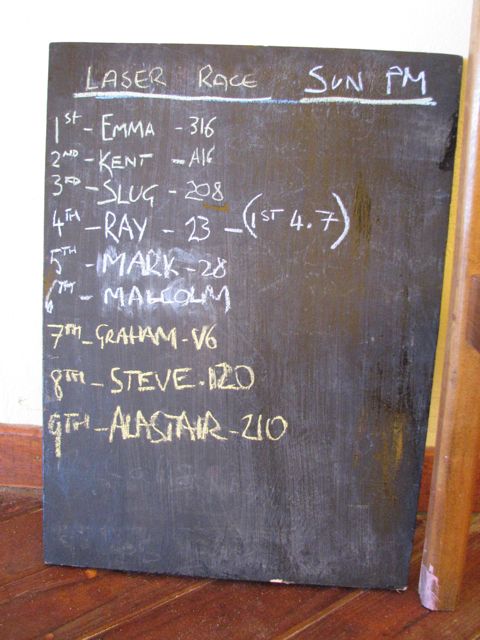 LASER RACE SUN PM
1ST - EMMA - 316
2ND - KENT - A16
3RD - SLUG - 208
4TH - RAY - 23 - (1ST 4.7)
5TH - MARK - 28
6TH - MALCOLM
7TH - GRAHAM - V6
8TH - STEVE - 120
9TH - ALASTAIR - 210